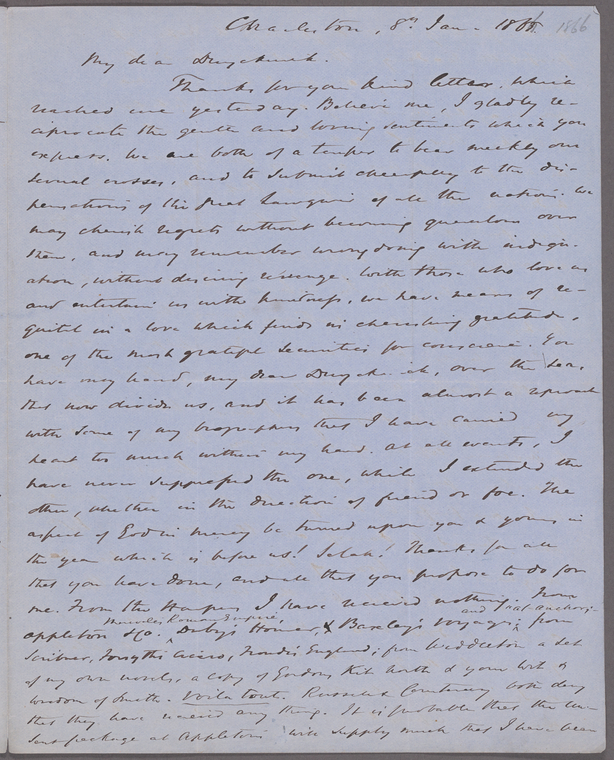 Charleston, 8th Jan. 1866. 1866
My dear Duyckinck.
Thanks for your kind letter, which
reached me yesterday. Believe me, I gladly re-
ciprocate the gentle and loving sentiments which you
express. We are both of a temper to bear meekly our
several crosses, and to submit cheerfully to the dis-
pensations of the great Lawgiver of all the nations. We
may cherish regrets without becoming querulous over
them, and may remember wrongdoing with indign-
ation, without desiring revenge. With those who love us
and entertain us with kindness, we have means of re-
quital in a love which finds in cherishing gratitude,
one of the most grateful securities for conscience. You
have my hand, my dear Duyckinck, over the seas,
that now divide us, and it has been almost a reproach
with some of my biographers that I have carried my
heart too much within my hand. At all events, I
have never suppressed the one, while I extended the
other, whether in the direction of friend or foe. The
aspect of God in mercy be turned upon you & yours in
the year which is before us! Selah! Thanks for all
that you have done, and all that you propose to do for
me. From the Harpers I have received nothing; From
Appleton & Co. Merivales Roman Empire, Derby's Homer, & Barclay's Voyages; from
Scribner, Forsyth's Cicero, Froude's England; from Widdleton a set
of my own novels, a copy of Gordons Kit North & your Wit &
wisdom of Smith. Voila tout. Russell & Courtenay both deny
that they have received any thing. It is probable that the un-
sent package at Appletons will supply much that I have been